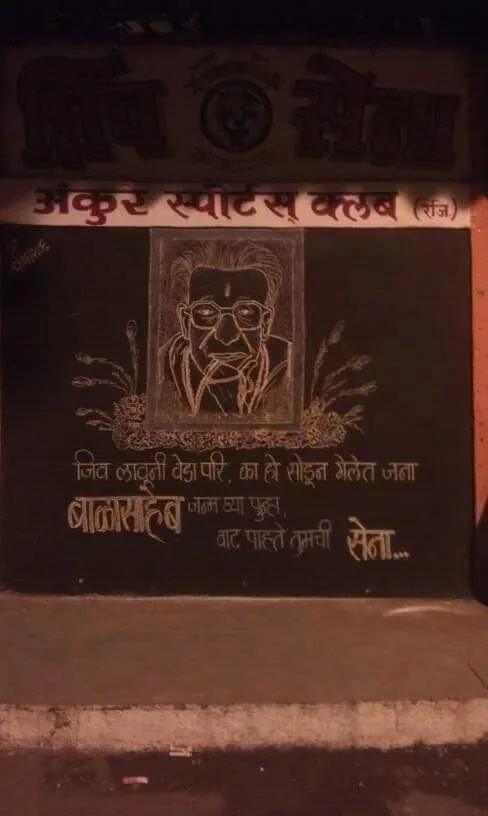 शिव सेना
अंकुर स्पोर्टस् क्लब (रजि.)
जिव लावूनी वेडा परि, का हो सोडून गेलेत जना
बाळासाहेब जन्म घ्या पुन्हा,
वाट पाहते तुमची सेना...